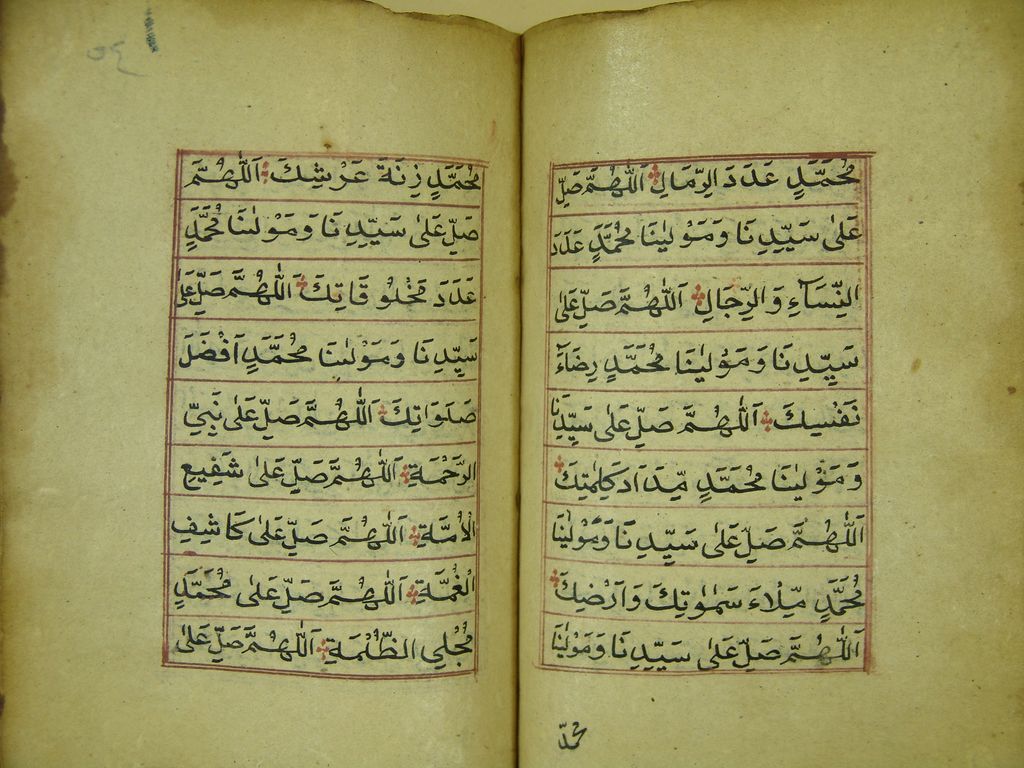 مُحَمَّدٍ عَدَدَ الرِّمَالِ اَللّٰهُمَّ صَلِّ
عَلٰى سَيِّدِنَا وَمَوْلٰينَا مُحَمَّدٍ عَدَدَ
النِّسَآءِ وَالرِّجَالِ اَللّٰهُمَّ صَلِّ عَلٰى
سَيِّدِنَا وَمَوْلٰينَا مُحَمَّدٍ رِضَآءَ
نَفْسِكَ اَللّٰهُمَّ صَلِّ عَلٰى سَيِّدِنَا
وَمَوْلٰينَا مُحَمَّدٍ مِّدَادَ كَلِمٰتِكَ
اَللّٰهُمَّ صَلِّ عَلٰى سَيِّدِنَا وَمَوْلٰينَا
مُحَمَّدٍ مِّلْاءَ سَمٰوٰتِكَ وَاَرْضِكَ
اَللّٰهُمَّ صَلِّ عَلٰى سَيِّدِنَا وَمَوْلٰينَا
محمد
٥٤
مُحَمَّدٍ زِنَةَ عَرْشِكَ اَللّٰهُمَّ
صَلِّ عَلٰى سَيِّدِنَا وَمَوْلٰنَا مُحَمَّدٍ
عَدَدَ مَخْلُوقَاتِكَ اَللّٰهُمَّ صَلِّ عَلٰى
سَيِّدِنَا وَمَوْلٰنَا مُحَمَّدٍ اَفْضَلَ
صَلَوَاتِكَ اَللّٰهُمَّ صَلِّ عَلٰى نَبِيِّ
الرَّحْمَةِ اَللّٰهُمَّ صَلِّ عَلٰى شَفِيعِ
الْاُمَّةِ اَللّٰهُمَّ صَلِّ عَلٰى كَاشِفِ
الْغُمَّةِ اَللّٰهُمَّ صَلِّ عَلٰى مُحَمَّدٍ
مُجْلِي الظُّلْمَةِ اَللّٰهُمَّ صَلِّ عَلٰى